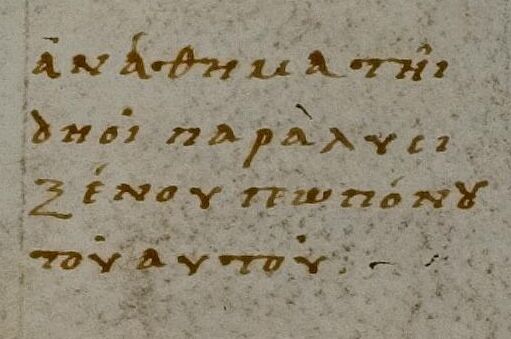 ἀνάθημα τῆι
δηοῖ παρὰ λυσι
ξένου γεωπόνου
τοῦ αὐτοῦ